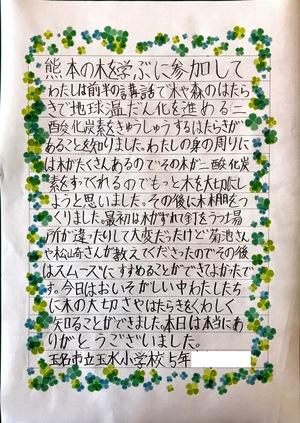 熊本の木を学ぶに参加して
わたしは前半の講話で木や森のはたら
きで地球温だん化を進める二
酸化炭素をきゅうしゅうするはたらきが
あることを知りました。わたしの身の周りに
は木がたくさんあるのでその木が二酸化炭
素をすってくれるのでもっと木を大切にし
ようと思いました。その後に木本棚をつ
くりました。最初は木がずれて釘をうつ場
所が違ったりして大変だったけど菊池さん
や松山奇さんが教えてくださったのでその後
はスムーズに すすめることができてよかったで
す。今日はおいそがしい中わたしたち
に木の大切さやはたらきをくわしく
知ることができました。本日は本当にあ
りがとうございました。
玉名市立玉水小学校 5年